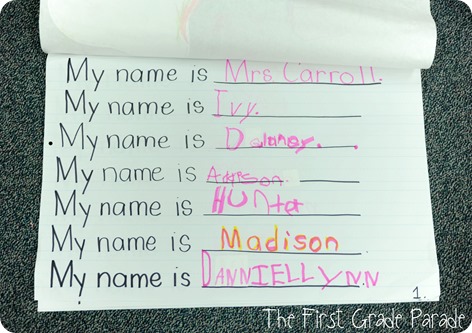 My name is Mrs Carroll.
My name is Ivy.
My name is Delaney.
My name is Addison.
My name is HUnter
My name is Madison
My name is DANNIELLYNN
1.
The First Grade Parade